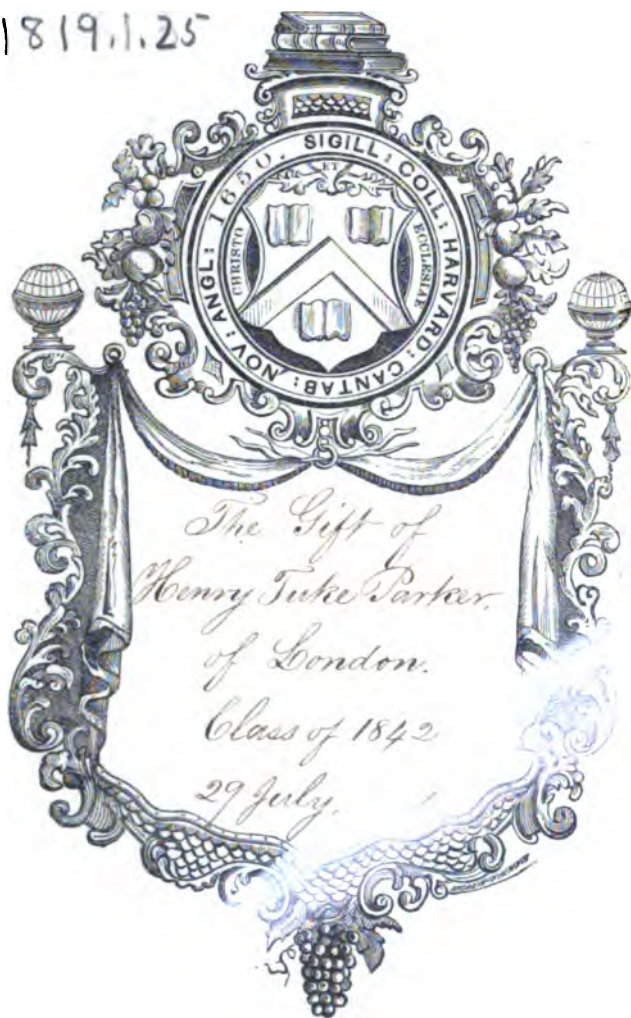 1819.1.25
SIGILL: COLL: HARVARD: CANTAB: NOV: ANGL: 1650.
ET
CHRISTO
ECCLESIAE
The Gift of
Henry Tuke Parker.
of London.
Class of 1842
29 July.